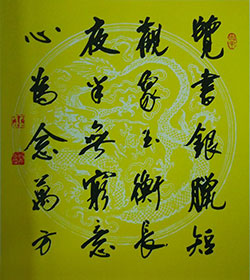 覽書銀蠟短
觀象玉衡長
夜半無窮意
心為念萬方